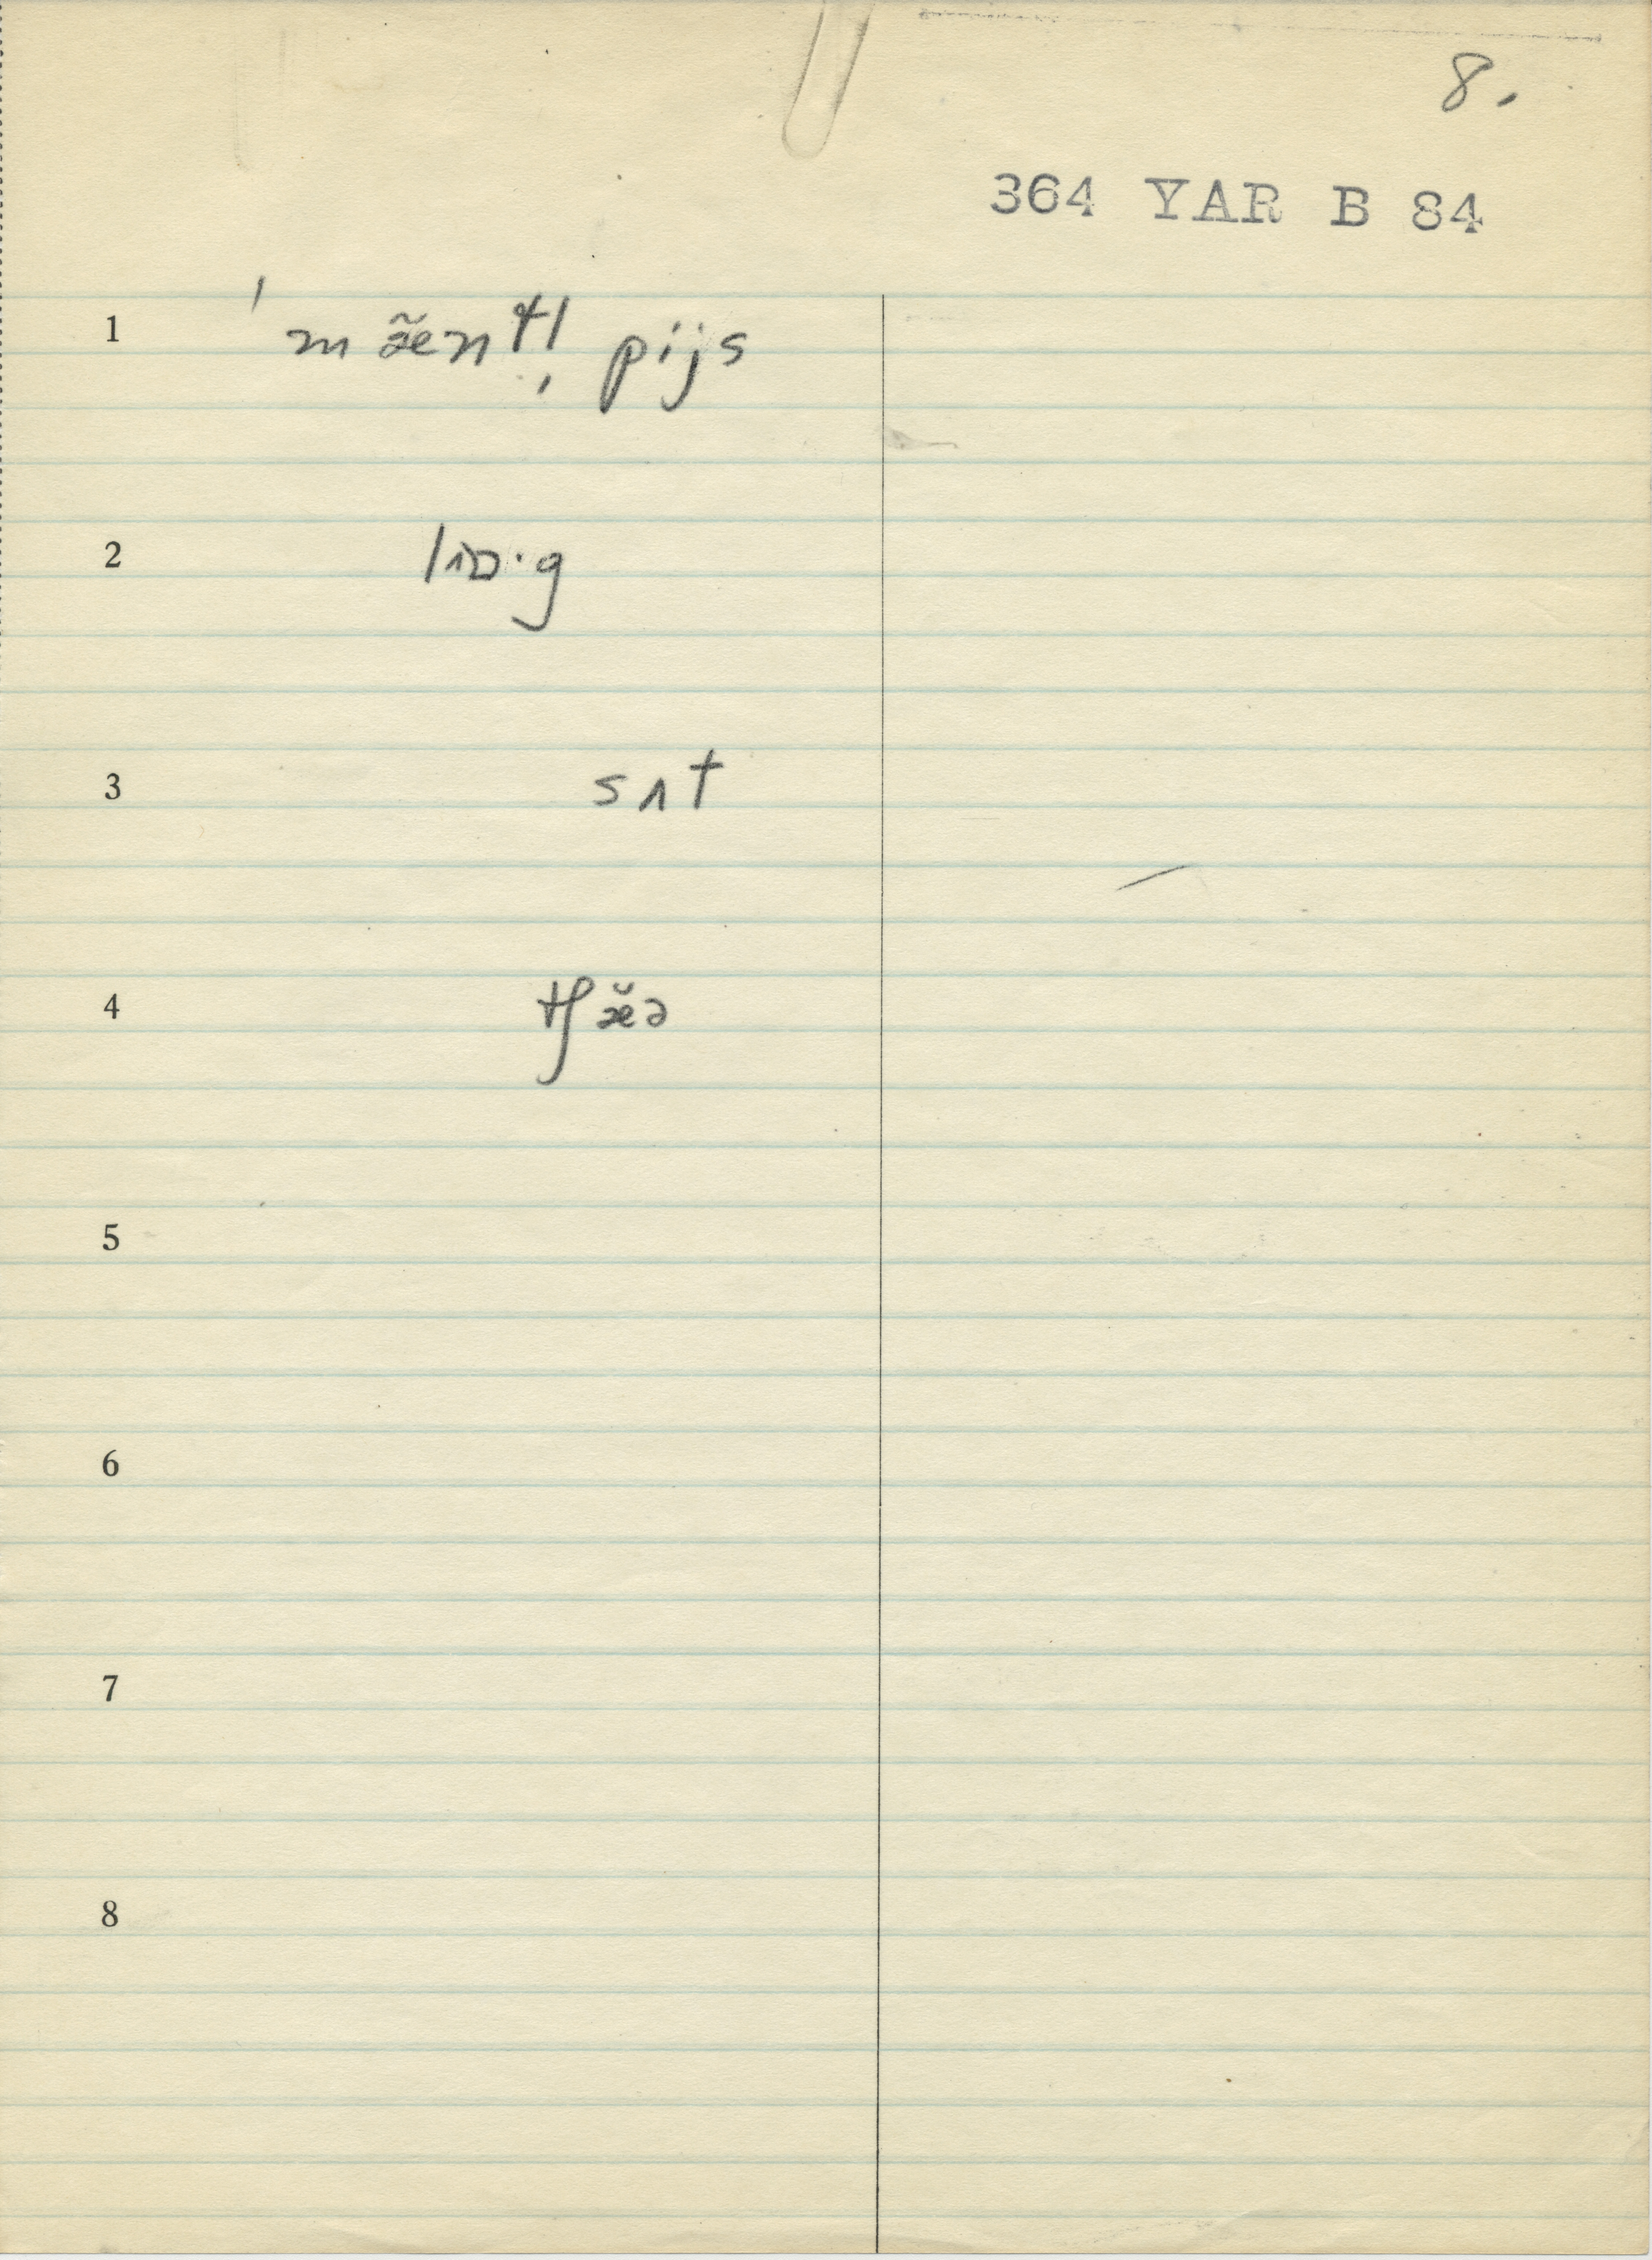 8.
364 YAR B 84
1 ˈmæ̃ntl̩ pijs
2 lɒ·g
3 sʌt
4 tʃæ̆ə
5
6
7
8